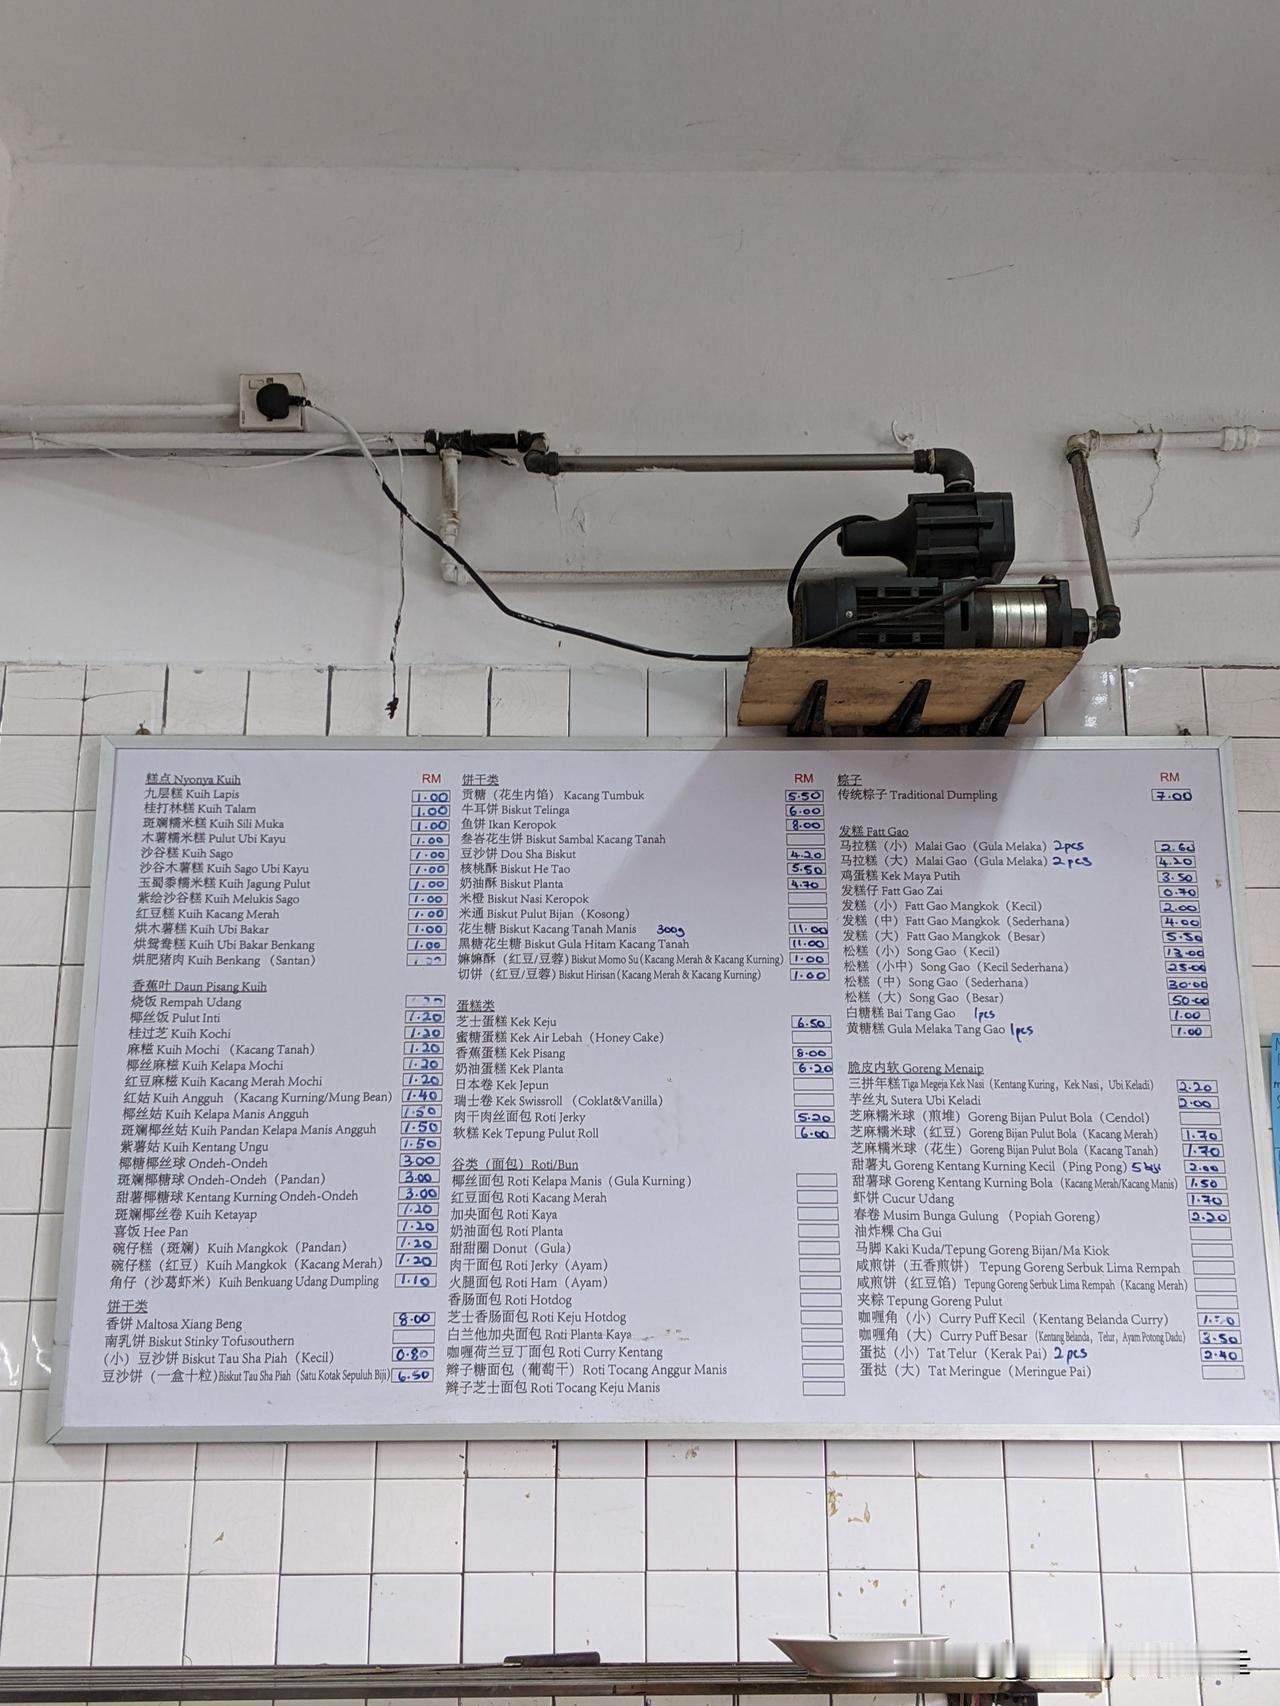 糕点 Nyonya Kuih RM
九层糕 Kuih Lapis 1.00
桂打林糕 Kuih Talam 1.00
斑斓糯米糕 Kuih Sili Muka 1.00
木薯糯米糕 Pulut Ubi Kayu 1.00
沙谷糕 Kuih Sago 1.00
沙谷木薯糕 Kuih Sago Ubi Kayu 1.00
玉蜀黍糯米糕 Kuih Jagung Pulut 1.00
紫绘沙谷糕 Kuih Melukis Sago 1.00
红豆糕 Kuih Kacang Merah 1.00
烘木薯糕 Kuih Ubi Bakar 1.00
烘鸳鸯糕 Kuih Ubi Bakar Benkang 1.00
烘肥猪肉 Kuih Benkang （Santan）
香蕉叶 Daun Pisang Kuih
烧饭 Rempah Udang
椰丝饭 Pulut Inti 1.20
桂过芝 Kuih Kochi 1.20
麻糍 Kuih Mochi （Kacang Tanah） 1.20
椰丝麻糍 Kuih Kelapa Mochi 1.20
红豆麻糍 Kuih Kacang Merah Mochi 1.20
红姑 Kuih Angguh （Kacang Kurning/Mung Bean） 1.40
椰丝姑 Kuih Kelapa Manis Angguh 1.50
斑斓椰丝姑 Kuih Pandan Kelapa Manis Angguh 1.50
紫薯姑 Kuih Kentang Ungu 1.50
椰糖椰丝球 Ondeh-Ondeh 3.00
斑斓椰糖球 Ondeh-Ondeh（Pandan） 3.00
甜薯椰糖球 Kentang Kurning Ondeh-Ondeh 3.00
斑斓椰丝卷 Kuih Ketayap 1.20
喜饭 Hee Pan 1.20
碗仔糕（斑斓）Kuih Mangkok（Pandan） 1.20
碗仔糕（红豆）Kuih Mangkok（Kacang Merah） 1.20
角仔（沙葛虾米） Kuih Benkuang Udang Dumpling 1.10
饼干类
香饼 Maltosa Xiang Beng 8.00
南乳饼 Biskut Stinky Tofusouthern
（小）豆沙饼 Biskut Tau Sha Piah（Kecil） 0.80
豆沙饼（一盒十粒）Biskut Tau Sha Piah（Satu Kotak Sepuluh Biji） 6.50
饼干类 RM
贡糖（花生内馅） Kacang Tumbuk 5.50
牛耳饼 Biskut Telinga 6.00
鱼饼 Ikan Keropok 8.00
叁峇花生饼 Biskut Sambal Kacang Tanah
豆沙饼 Dou Sha Biskut 4.20
核桃酥 Biskut He Tao 5.50
奶油酥 Biskut Planta 4.70
米橙 Biskut Nasi Keropok
米通 Biskut Pulut Bijan（Kosong）
花生糖 Biskut Kacang Tanah Manis 300g 11.00
黑糖花生糖 Biskut Gula Hitam Kacang Tanah 11.00
嫲嫲酥（红豆/豆蓉）Biskut Momo Su（Kacang Merah & Kacang Kurning） 1.00
切饼（红豆/豆蓉）Biskut Hirisan（Kacang Merah & Kacang Kurning） 1.00
蛋糕类
芝士蛋糕 Kek Keju 6.50
蜜糖蛋糕 Kek Air Lebah（Honey Cake）
香蕉蛋糕 Kek Pisang 8.00
奶油蛋糕 Kek Planta 6.20
日本卷 Kek Jepun
瑞士卷 Kek Swissroll （Coklat&Vanilla）
肉干肉丝面包 Roti Jerky 5.20
软糕 Kek Tepung Pulut Roll 6.00
谷类（面包）Roti/Bun
椰丝面包 Roti Kelapa Manis（Gula Kurning）
红豆面包 Roti Kacang Merah
加央面包 Roti Kaya
奶油面包 Roti Planta
甜甜圈 Donut（Gula）
肉干面包 Roti Jerky（Ayam）
火腿面包 Roti Ham（Ayam）
香肠面包 Roti Hotdog
芝士香肠面包 Roti Keju Hotdog
白兰他加央面包 Roti Planta Kaya
咖喱荷兰豆丁面包 Roti Curry Kentang
辫子糖面包（葡萄干）Roti Tocang Anggur Manis
辫子芝士面包 Roti Tocang Keju Manis
粽子 RM
传统粽子 Traditional Dumpling 7.00
发糕 Fatt Gao
马拉糕（小）Malai Gao（Gula Melaka） 2pcs 2.60
马拉糕（大）Malai Gao（Gula Melaka） 2pcs 4.20
鸡蛋糕 Kek Maya Putih 3.50
发糕仔 Fatt Gao Zai 0.70
发糕（小）Fatt Gao Mangkok（Kecil） 2.00
发糕（中）Fatt Gao Mangkok（Sederhana） 4.00
发糕（大）Fatt Gao Mangkok（Besar） 5.50
松糕（小）Song Gao（Kecil） 13.00
松糕（小中）Song Gao（Kecil Sederhana） 25.00
松糕（中）Song Gao（Sederhana） 30.00
松糕（大）Song Gao（Besar） 50.00
白糖糕 Bai Tang Gao 1pcs 1.00
黄糖糕 Gula Melaka Tang Gao 1pcs 1.00
脆皮内软 Goreng Menaip
三拼年糕 Tiga Megeja Kek Nasi（Kentang Kuring，Kek Nasi，Ubi Keladi） 2.20
芋丝丸 Sutera Ubi Keladi 2.00
芝麻糯米球（煎堆）Goreng Bijan Pulut Bola（Cendol）
芝麻糯米球（红豆）Goreng Bijan Pulut Bola（Kacang Merah） 1.70
芝麻糯米球（花生）Goreng Bijan Pulut Bola（Kacang Tanah） 1.70
甜薯丸 Goreng Kentang Kurning Kecil（Ping Pong） 5 biji 2.00
甜薯球 Goreng Kentang Kurning Bola（Kacang Merah/Kacang Manis） 1.50
虾饼 Cucur Udang 1.70
春卷 Musim Bunga Gulung （Popiah Goreng） 2.20
油炸粿 Cha Gui
马脚 Kaki Kuda/Tepung Goreng Bijan/Ma Kiok
咸煎饼（五香煎饼） Tepung Goreng Serbuk Lima Rempah
咸煎饼（红豆馅）Tepung Goreng Serbuk Lima Rempah（Kacang Merah）
夹粽 Tepung Goreng Pulut
咖喱角（小）Curry Puff Kecil（Kentang Belanda Curry）
咖喱角（大）Curry Puff Besar（Kentang Belanda，Telur，Ayam Potong Dadu） 3.50
蛋挞（小）Tat Telur（Kerak Pai） 2pcs 2.40
蛋挞（大）Tat Meringue（Meringue Pai）